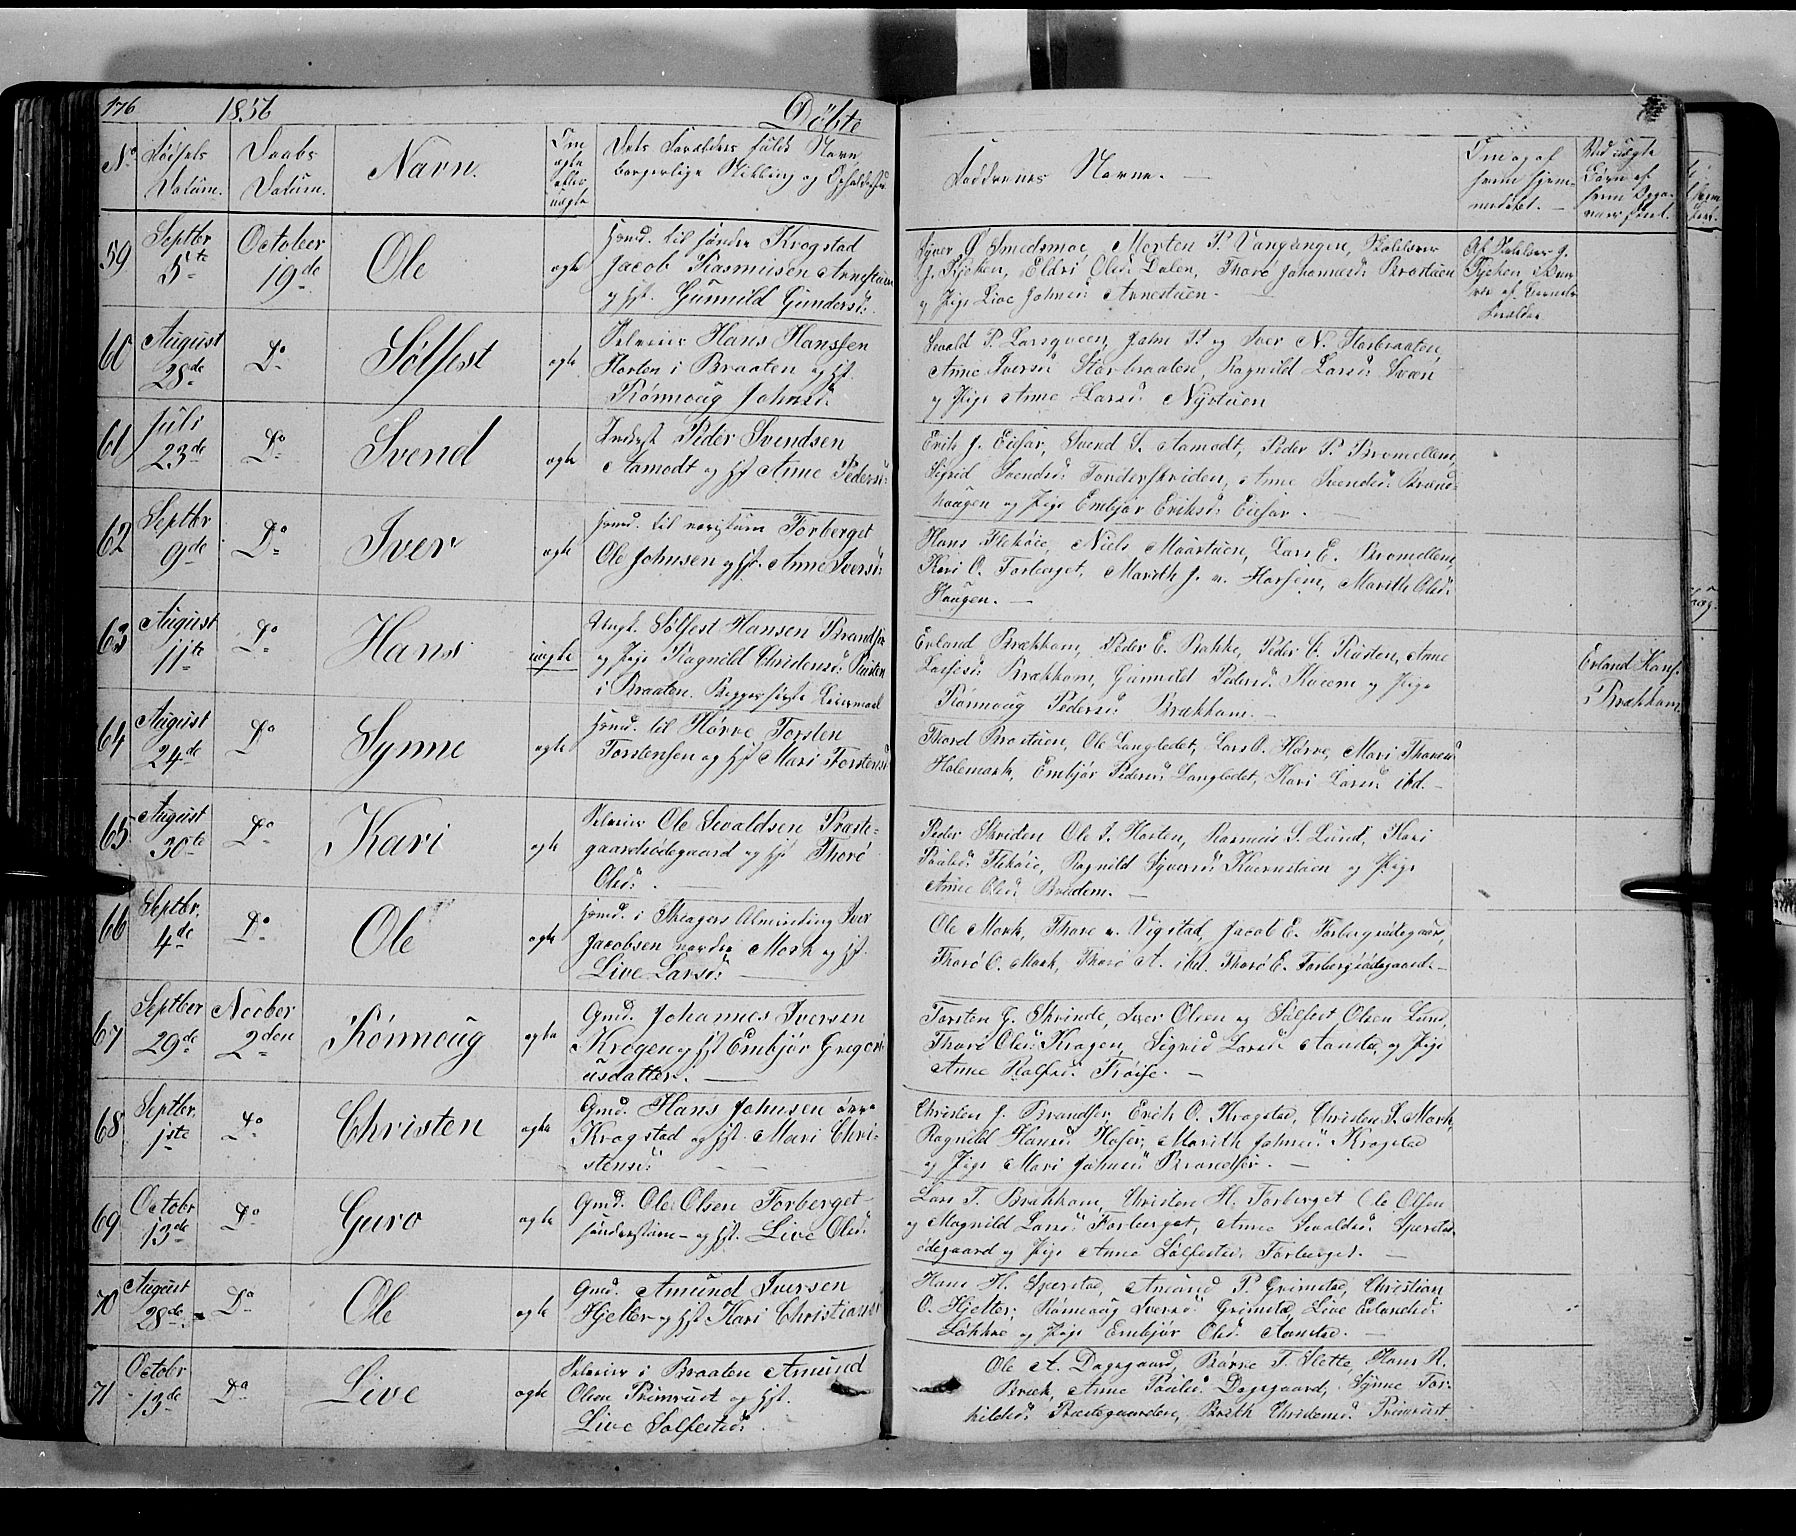 176 1856 Döbte
No Fødsels Datum. Daabs Datum. Navn. Om ægte eller uægte Dets Forældres fulde Navn borgerlige Stilling og Opholdssted
Faddrenes Navne. —
Om og af hvem hjemmedøbt. — Ved uægte Børn af hvem Opga-
59 Septbr 5te October 19de Ole ægte
Gmd. til søndre Krogstad
Jacob Rasmusen Arnestuen
og hst. Gunnild Gundersd:
Syver Ø Smedsmoe, Morten P. Vangsengen,
J. Kjæken, Eldri Olsd. Dalen, Thorø Johannesd: Brostuen
og Pige Live Johnsd: Arnestuen. —
60 August 28de Do Sølfest ægte
Hans Hanssen
Horten i Braaten og hst.
Rønnoug Johnsd:
Sevald P. Larsgveen, John P. og Iver N. Storbraaten,
Anne Iversd: Storbraaten, Ragnild Larsd: Sveen
og Pige Anne Larsd: Nystuen
61 Juli 23de Do Svend ægte
Inderst Peder Svendsen
Aamodt og hst Anne Pedersd:
Erik J. Eilsar, Svend S. Aamodt, Peder P. Bromellem,
Sigrid Svendsd: Tonderskriden, Anne Svendsd: Brænd-
haugen og Pige Embjør Eriksd: Eilsar. —
62 Septbr 9de Do Iver ægte
Gmd. til Forberget
Ole Johnsen og hst. Anne Iversd:
Hans Flekøie, Niels Maastuen, Lars E. Bromellem,
Kari O. Forberget, Marith J. n. Horsem, Marith Olsd:
Haugen. —
63 August 11te Do Hans uægte
Ungk. Sølfest Hansen Brandsar
og Pige Ragnild Christensd: Rusten
i Braaten. Begges første Leiermaal
Erland Brækham, Peder E. Bakke, Peder C. Rusten, Anne
Larsesd: Brækham, Gunnild Pedersd: Kveem og Pige
Rønnoug Pedersd: Brækham. —
Erland Hans. Brækham.
64 August 24de Do Synne ægte
Gmd. til Hørve Torsten
Torstensen og hst Mari Torstensd:
Thord Brostuen, Ole Langledet, Lars O. Hørve, Mari Thoresd:
Halemark, Embjør Pedersd: Langledet, Kari Larsd: ibd. —
65 August 30te Do Kari ægte
Ole Sevaldsen Præste-
gaardsødegaard og hst. Thorø
Olsd: . —
Peder Skriden Ole I. Horten, Rasmus S. Lund, Kari
Paulsd: Flekøie, Ragnild Syversd: Kvernstuen og Pige
Anne Olsd: Bræden. —
66 Septbr. 4de Do Ole ægte
Gmd. i Skeagers Alminding Iver
Jacobsen nordre Mork og hst.
Live Larsd: —
Ole Mork, Thore n. Vigstad, Jacob E. Forbergsødegaard,
Thorø O. Mork, Thorø A. ibd. Thorø E. Forbergsødegaard. —
67 Septber 29de Novber 2den Rønnoug ægte
Gmd. Johannes Iversen
Krogen og hst Embjør Gregori-
usdatter. —
Torsten J. Skrinde, Iver Olsen og Sølfest Olsen Lund,
Thorø Olsd: Krogen, Sigrid Larsd: Aanstad, og Pige
Anne Rolfsd: Frøise. —
68 Septbr. 1ste Do Christen ægte
Gmd. Hans Johnsen øvre
Krogstad og hst. Mari Chri-
stensd: —
Christen J. Brandsar, Erik O. Krogstad, Christen I. Mork,
Ragnild Hansd: Hofer, Marith Johnsd: Krogstad
og Pige Mari Johnsd: Brandsar. —
69 Octobr 13de Do Guro ægte
Gmd. Ole Olsen Forberget
sønderstuen — og hst. Live Olsd:
Lars T. Brækham, Christen H. Forberget Ole Olsen
og Magnild Larsd: Forberget, Anne Sevaldsd: Sperstad-
ødegaard og Pige Anne Sølfestsd: Forberget. —
70 August 28de Do Ole ægte
Gmd. Amund Iversen
Hjelter og hst Kari Christiansd:
Hans H. Sperstad, Amund P. Grimstad, Christian
O. Hjelter, Rønnoug Iversd: Grimstad, Live Erlandsd:
Løkkre og Pige Embjør Olsd: Aanstad. —
71 Octobr 13de Do Live ægte
i Braaten Amund
Olsen Primrust og hst.
Live Solfestsd: .
Ole A. Dagsgaard, Børre T. Slette, Hans R.
Bræk, Anne Paulsd: Dagsgaard, Synne Tor-
kildsd: Præstegaarden, Brith Christensd: Primrust.